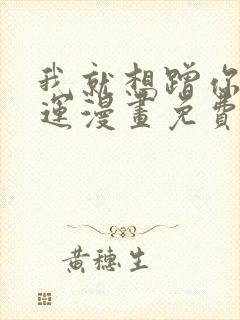 我就想蹭你
運漫畫免費
黃穗生